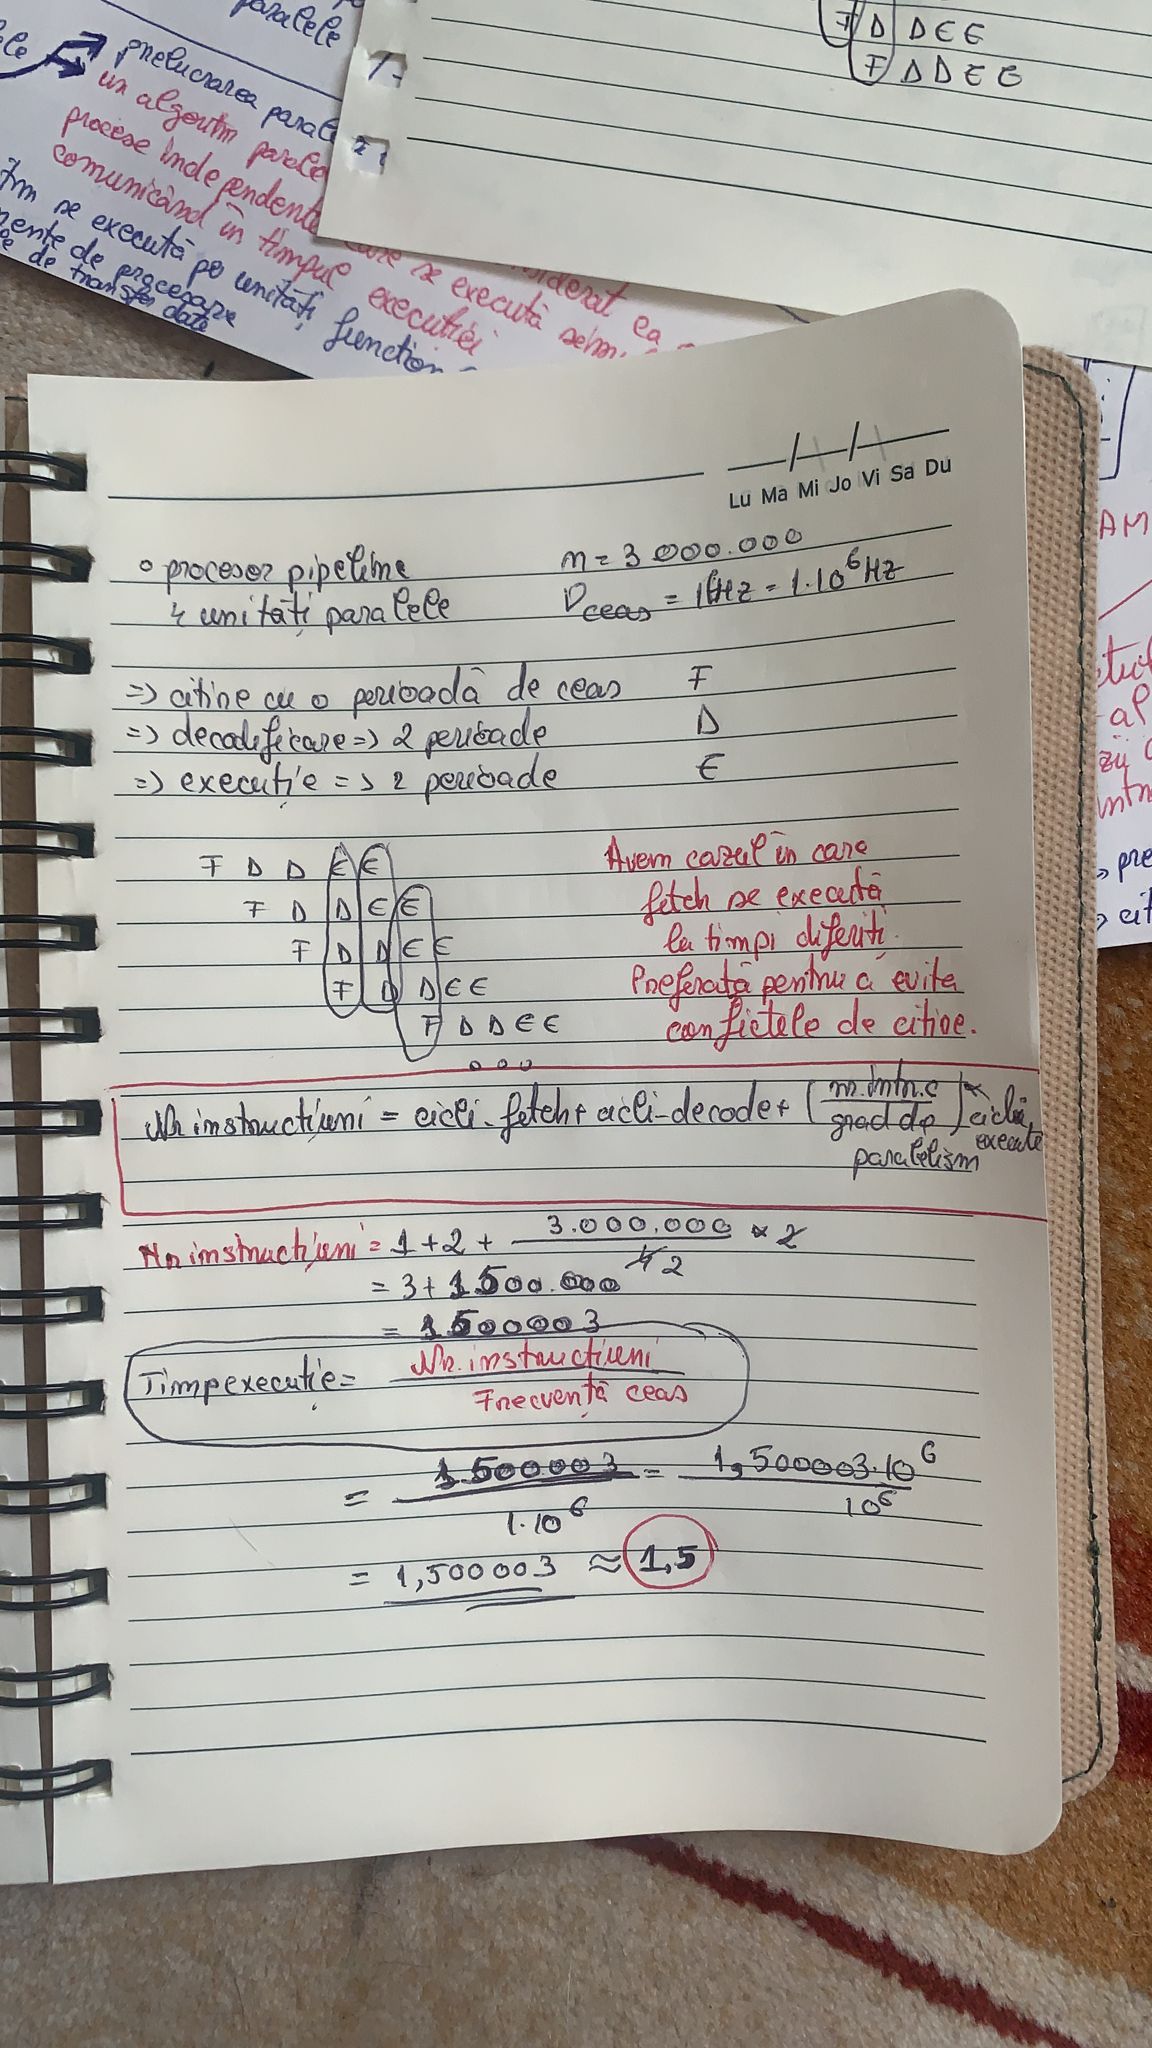 F D D E E
F D D E E
paralele
prelucrarea
un algoritm
procese independente
comunicând în timpul execuției
care se execută
considerat ca
se execută pe unități function
de procesare
de transfer date
Lu Ma Mi Jo Vi Sa Du
procesor pipeline n = 3 000.000
4 unități paralele νceas = 1GHz = 1·10⁶Hz
=> citire cu o perioadă de ceas F
=> decodificare => 2 perioade D
=> execuție => 2 perioade E
F D D E E
F D D E E
F D D E E
F D D E E
F D D E E
...
Avem cazul în care
fetch se execută
la timpi diferiți.
Preferată pentru a evita
conflictele de citire.
Nr instrucțiuni = cicli-fetch + cicli-decode + (nr.intr.c / grad de paralelism) * cicli execute
Nr instrucțiuni = 1 + 2 + 3.000.000 / 4 2 * 2
= 3 + 1500.000
= 1500003
Timp execuție = Nr. instrucțiuni / Frecvență ceas
= 1500003 / 1·10⁶ = 1,500003·10⁶ / 10⁶
= 1,500003 ≈ 1,5